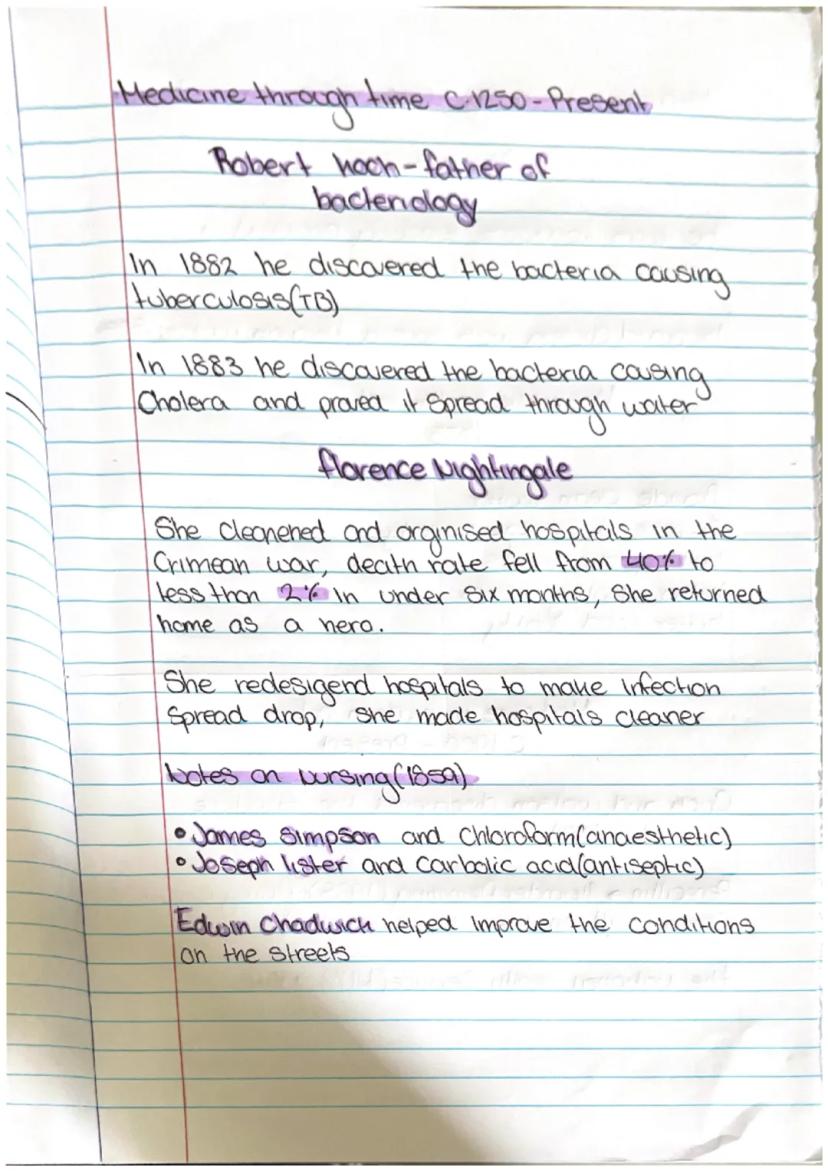 Medicine through time C.1250 - Present
Robert hoch - father of
bacteriology
In 1882 he discovered the bacteria causing
tuberculosis(TB)
In 1883 he discovered the bacteria causing
Cholera and proved it spread through water
florence Nightingale
She cleanened and orginised hospitals in the
Crimean war, death rate fell from 40% to
less than 2% in under six months, She returned
home as a hero.
She redesigend hospitals to make infection
spread drop, She made hospitals cleaner
Notes on Nursing(1859)
• James Simpson and Chloroform(anaesthetic)
• Joseph lister and Carbolic acid(antiseptic)
Edwin Chadwick helped improve the conditions
on the streets